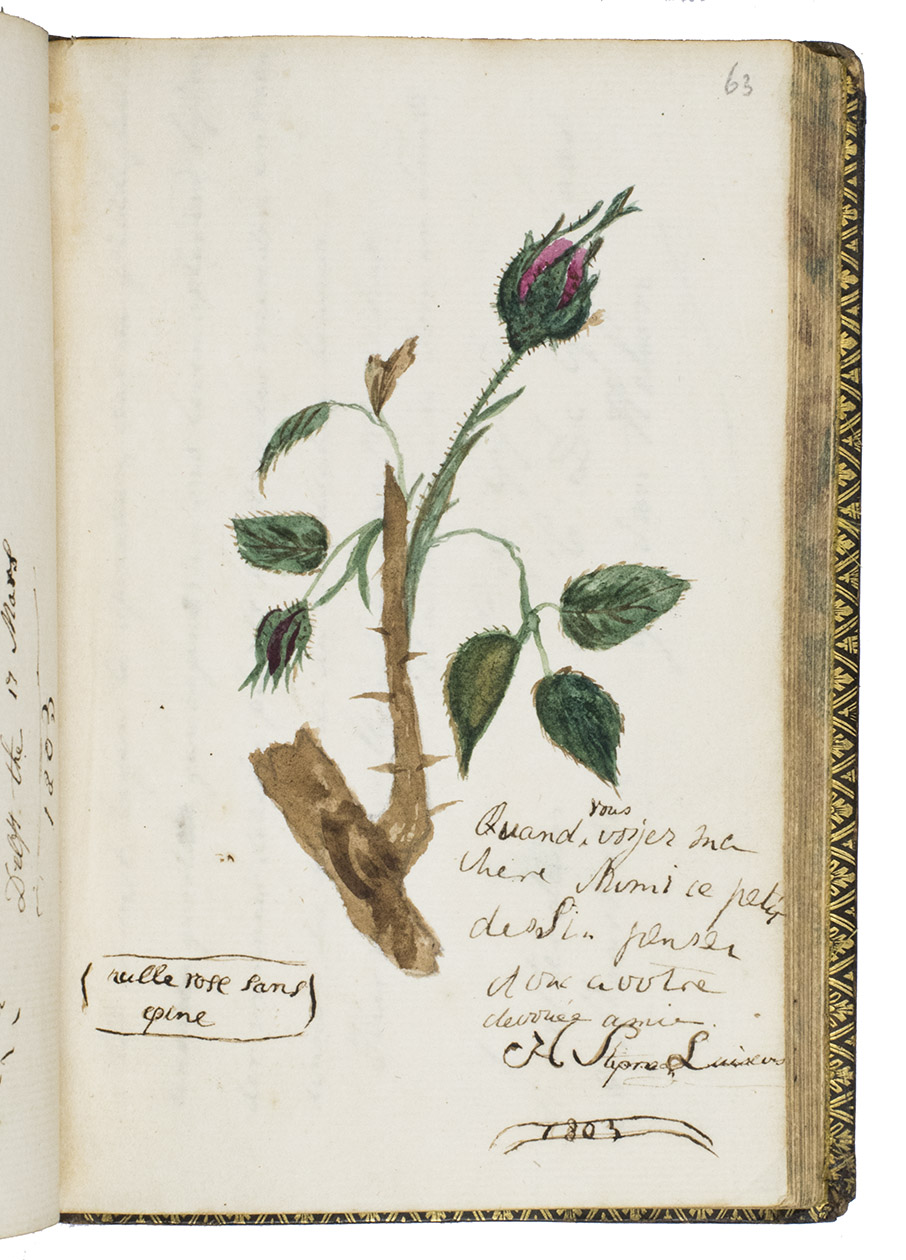 63
Quand vous voijer ma
chere Mimi ce petit
dessin penser
donc a votre
devouée amie.
H
1803
nulle rose sans
epine
the 17 Mars
1803